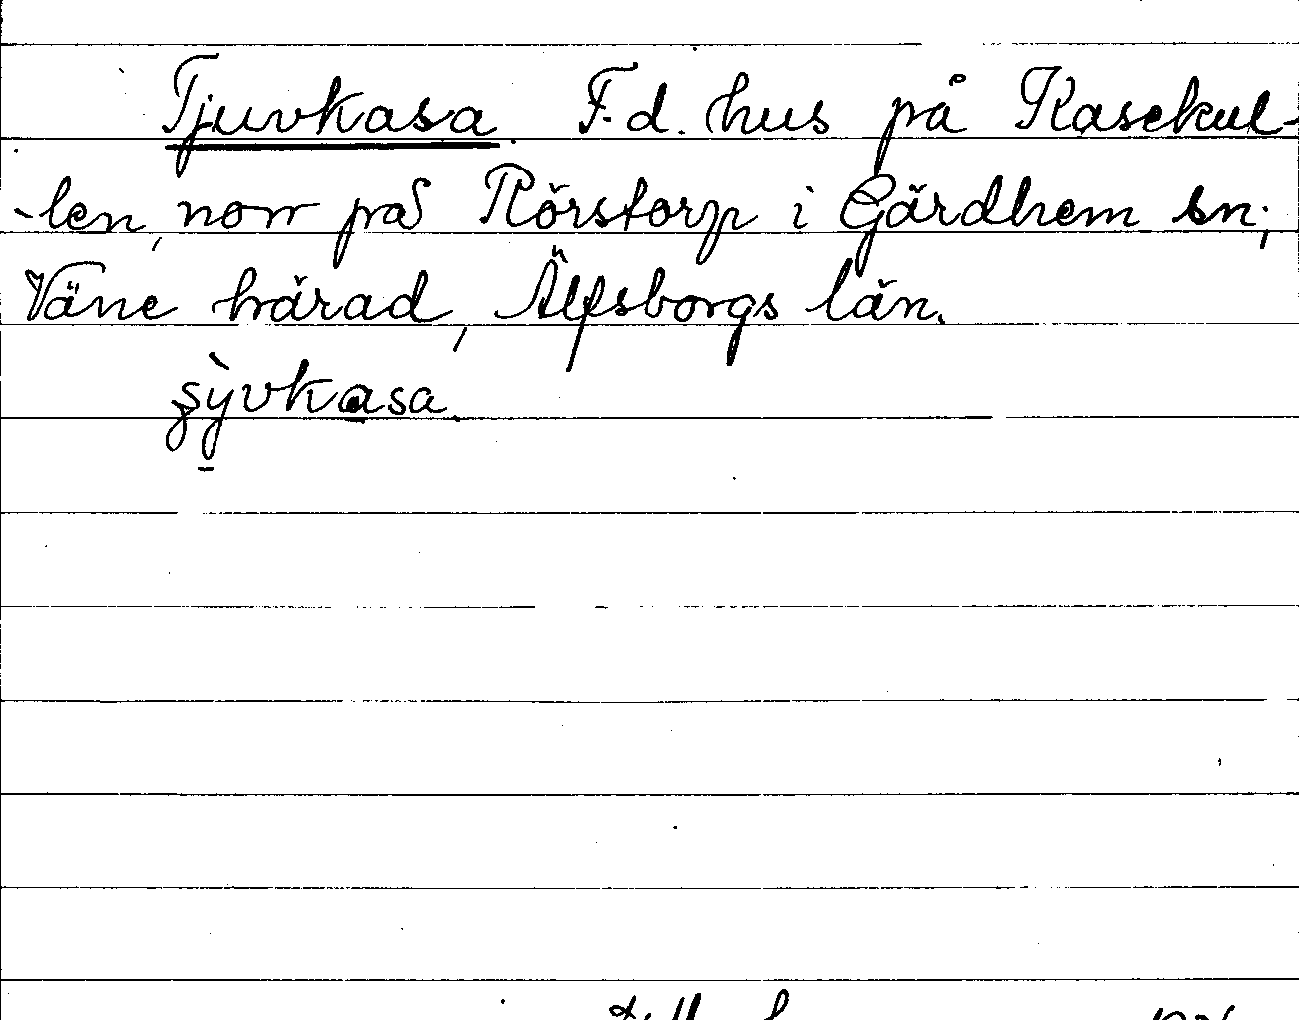 Tjuvkasa. F.d. hus på Kasekul-
-len, norr på Rörstorp i Gärdhem sn,
Väne härad, Älfsborgs län.